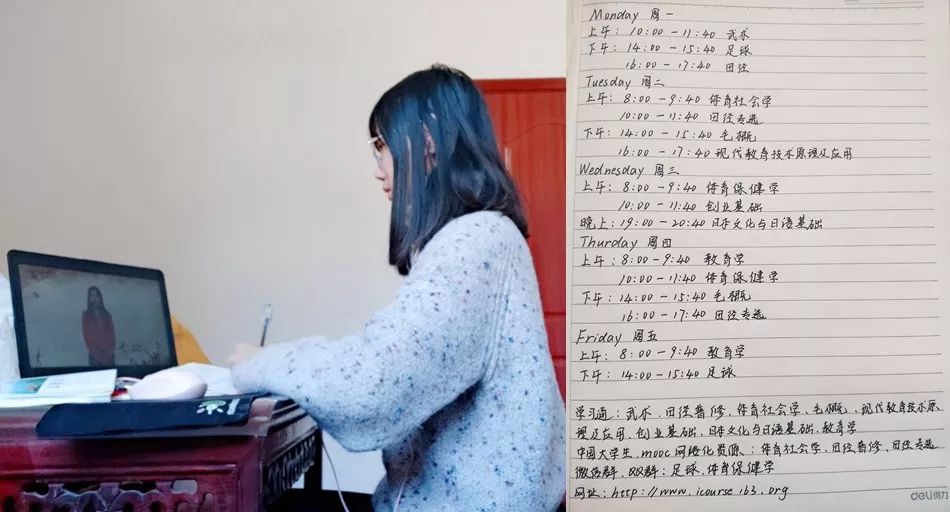 Monday 周一
上午: 10:00-11:40 武术
下午: 14:00-15:40 足球
16:00-17:40 田径
Tuesday 周二
上午: 8:00-9:40 体育社会学
10:00-11:40 田径专选
下午: 14:00-15:40 毛概
16:00-17:40 现代教育技术原理及应用
Wednesday 周三
上午: 8:00-9:40 体育保健学
10:00-11:40 创业基础
晚上: 19:00-20:40 日本文化与日语基础
Thurday 周四
上午: 8:00-9:40 教育学
10:00-11:40 体育保健学
下午: 14:00-15:40 毛概
16:00-17:40 田径专选
Friday 周五
上午: 8:00-9:40 教育学
下午: 14:00-15:40 足球
学习通: 武术、田径普修、体育社会学、毛概、现代教育技术原
理及应用、创业基础、日本文化与日语基础、教育学
中国大学生mooc网络化资源: 体育社会学、田径普修、田径专选
微信群、QQ群: 足球、体育保健学
网址: http://www.icourse163.org
deli得力